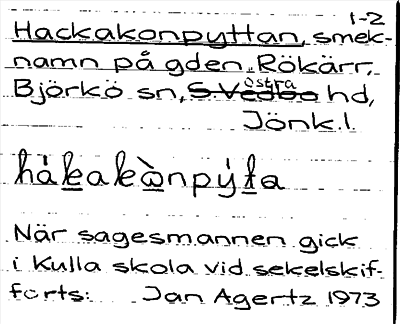 1-2
Hackakonpyttan, smek-
namn på gden Rökärr,
östra
Björkö sn, S. Vedbo hd,
Jönk. l.
hàk̲akὼ̲npýt̲a
När sagesmannen gick
i Kulla skola vid sekelskif-
forts: Jan Agertz 1973